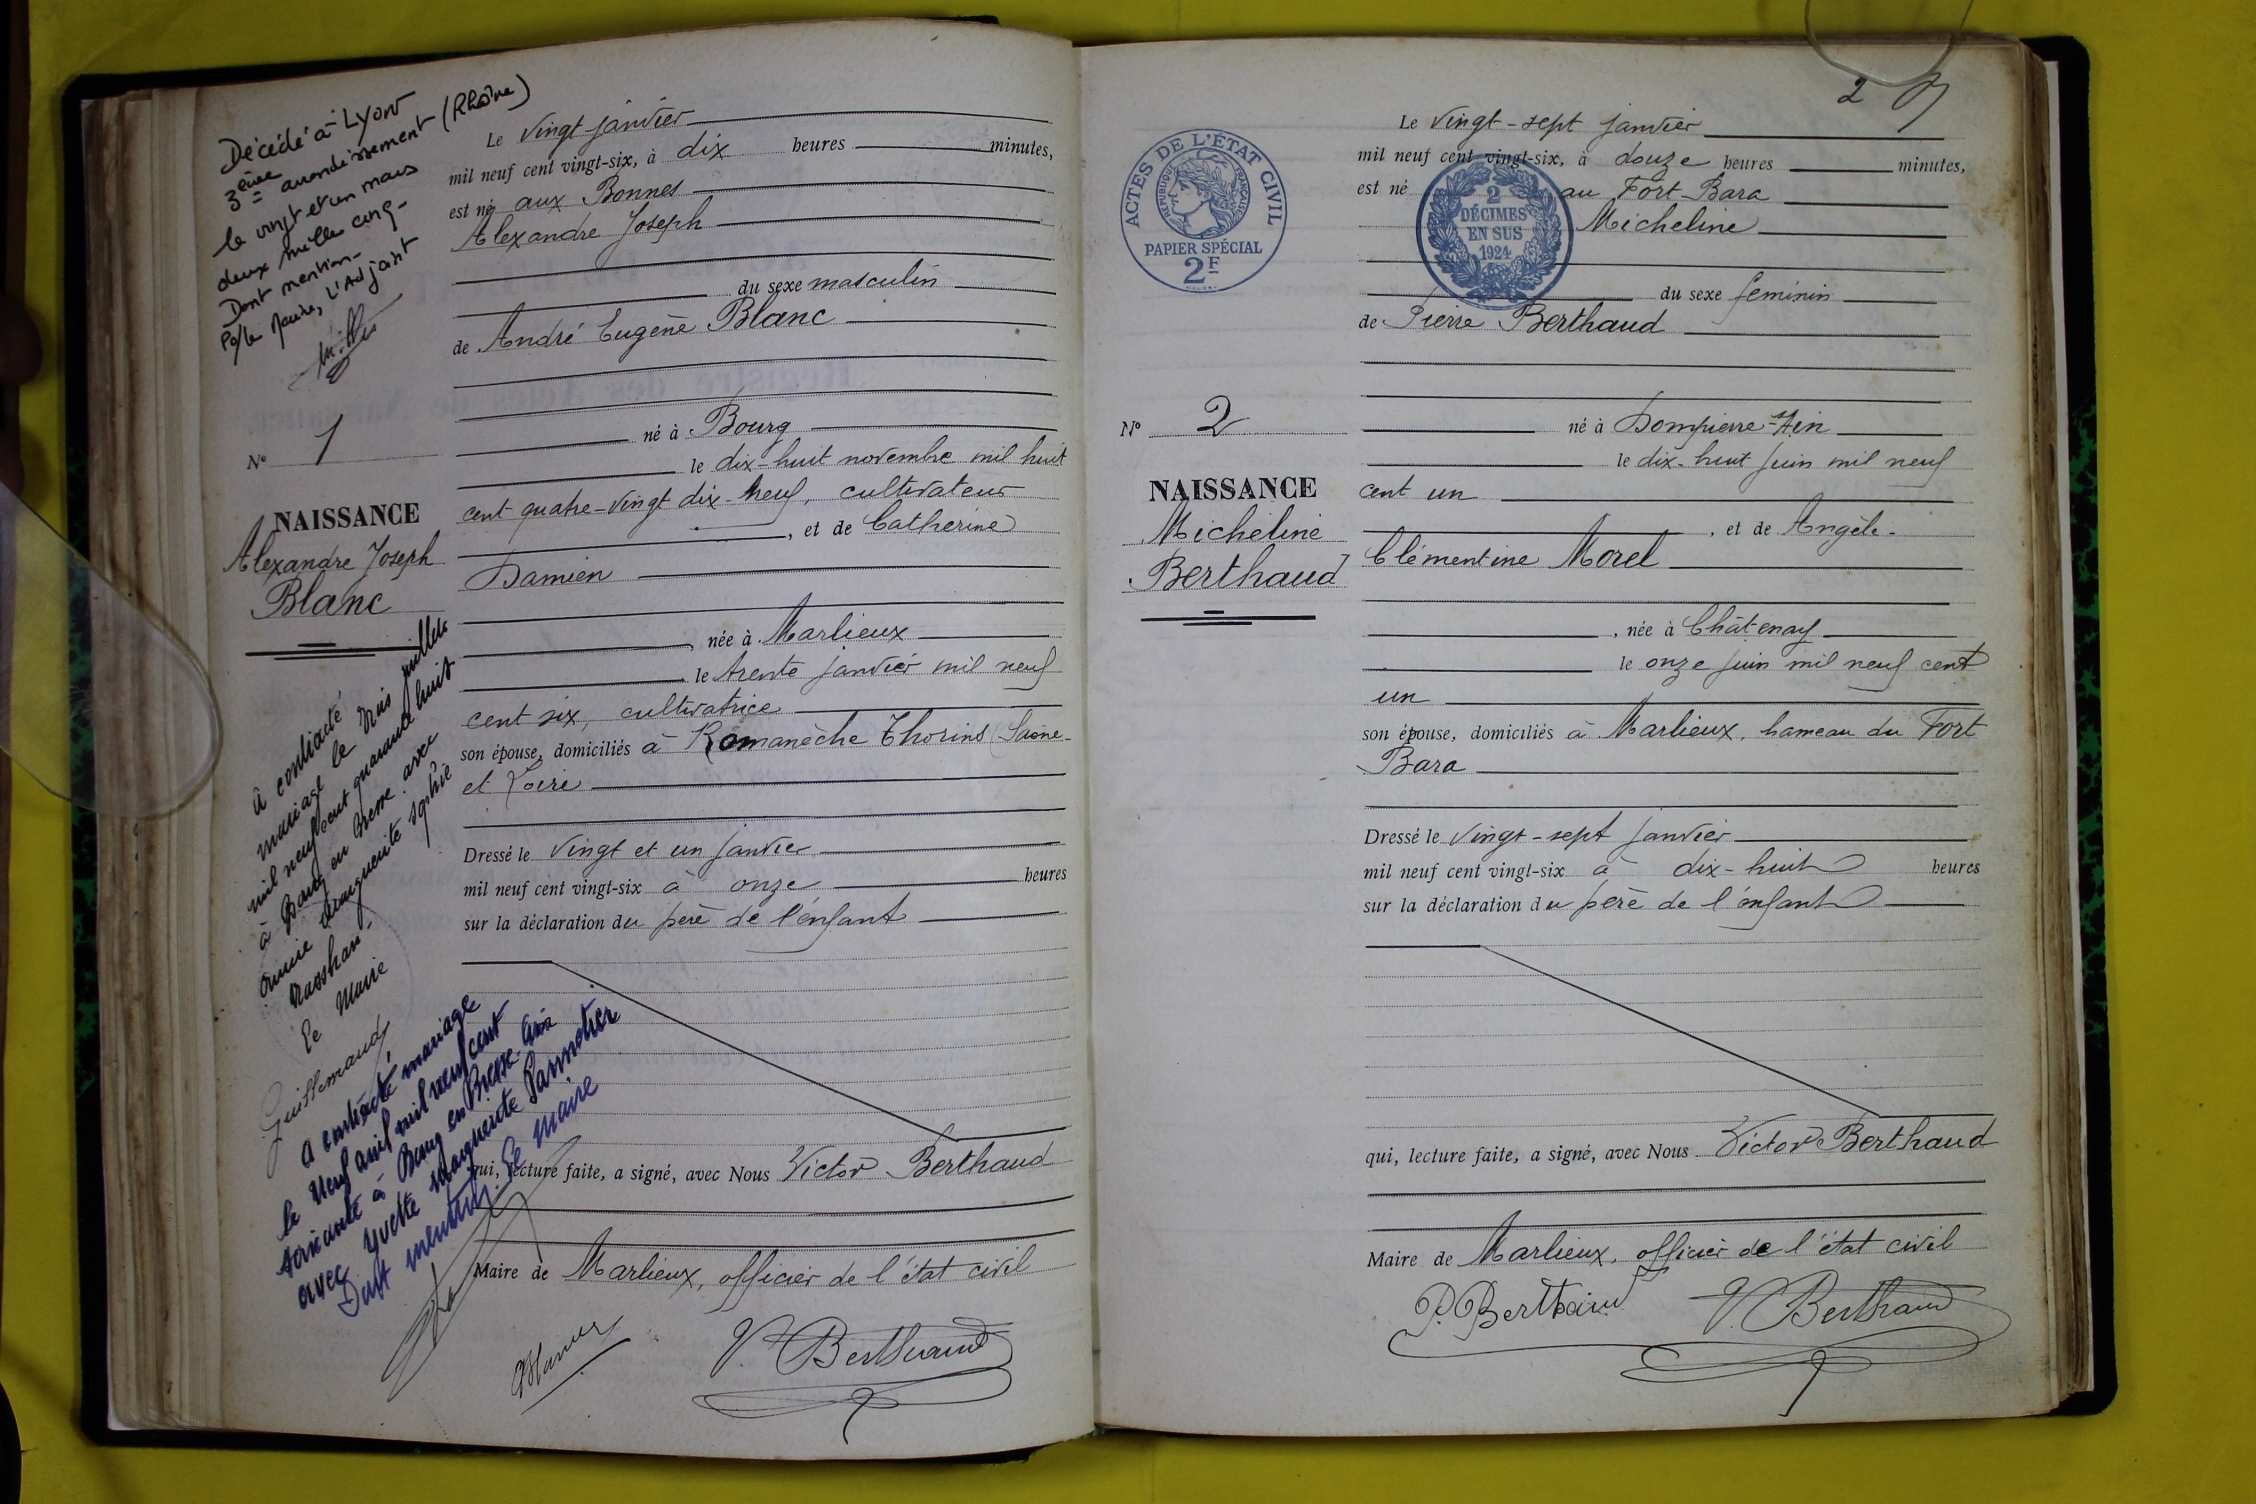 Décédé à Lyon
3ème arrondissement (Rhône)
le vingt et un mars
deux mille cinq-
Dont mention-
P/le Maire, L'Adjoint
N° 1
NAISSANCE
Alexandre Joseph
Blanc
a contracté
mariage le trois juillet
mil neuf cent quarante huit
à Bourg en Bresse avec
Marguerite Sophie
Le Maire
Guillemaud
a contracté mariage
le neuf avril mil neuf cent
soixante à Bourg en Bresse Ain
avec Yvette Marguerite Parmetier
Dont mention. Le Maire
Le vingt janvier
mil neuf cent vingt-six, à dix heures minutes,
est né aux Bonnes
Alexandre Joseph
du sexe masculin
de André Eugène Blanc
né à Bourg
le dix-huit novembre mil huit
cent quatre-vingt dix-neuf, cultivateur
, et de Catherine
Damien
, née à Marlieux
le trente janvier mil neuf
cent six, cultivatrice
son épouse, domiciliés à Romanèche Thorins (Saône-
et Loire
Dressé le vingt et un janvier
mil neuf cent vingt-six à onze heures
sur la déclaration du père de l'enfant
qui, lecture faite, a signé, avec Nous Victor Berthaud
Maire de Marlieux, officier de l'état civil
V. Berthaud
2
ACTES DE L'ÉTAT CIVIL
RÉPUBLIQUE FRANÇAISE
PAPIER SPÉCIAL
2F
2
DÉCIMES
EN SUS
1924
N° 2
NAISSANCE
Micheline
Berthaud
Le vingt-sept janvier
mil neuf cent vingt-six, à douze heures minutes,
est né au Fort-Bara
Micheline
du sexe féminin
de Pierre Berthaud
né à Dompierre-Ain
le dix-huit juin mil neuf
cent un
, et de Angèle-
Clémentine Morel
, née à Châtenay
le onze juin mil neuf cent
un
son épouse, domiciliés à Marlieux, hameau du Fort
Bara
Dressé le vingt-sept janvier
mil neuf cent vingt-six à dix-huit heures
sur la déclaration du père de l'enfant
qui, lecture faite, a signé, avec Nous Victor Berthaud
Maire de Marlieux, officier de l'état civil
P. Berthaud V. Berthaud